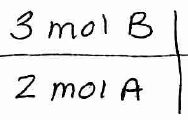 3 mol B
2 mol A